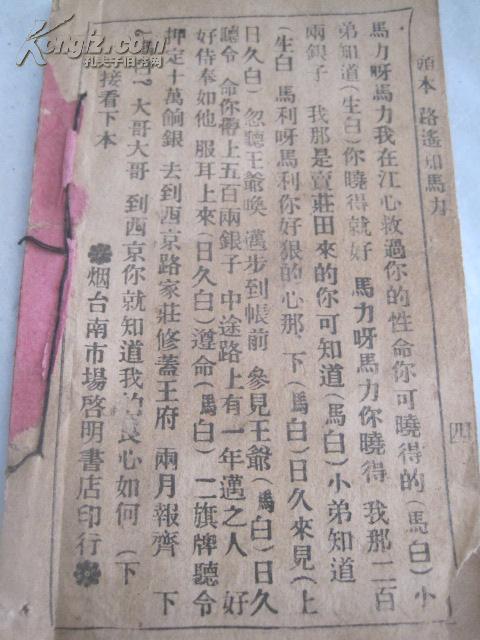 頭本 路遙知馬力
四
馬力呀馬力我在江心救過你的性命你可曉得的(馬白)小
弟知道(生白)你曉得就好 馬力呀馬力你曉得 我那二百
兩銀子 我那是賣莊田來的你可知道(馬白)小弟知道
(生白 馬利呀馬利你好狠的心那、下(馬白)日久來見(上
日久白)忽聽王爺喚 邁步到帳前 參見王爺(馬白)日久
聽令 命你帶上五百兩銀子 中途路上有一年邁之人 好
好侍奉如他 服耳上來(日久白)遵命(馬白) 二旗牌聽令
押定十萬餉銀 去到西京路家莊修蓋王府 兩月報齊 下
白、大哥大哥 到西京你就知道我的良心如何 (下
接看下本
烟台南市場啓明書店印行
Kongfz.com
孔夫子旧书网